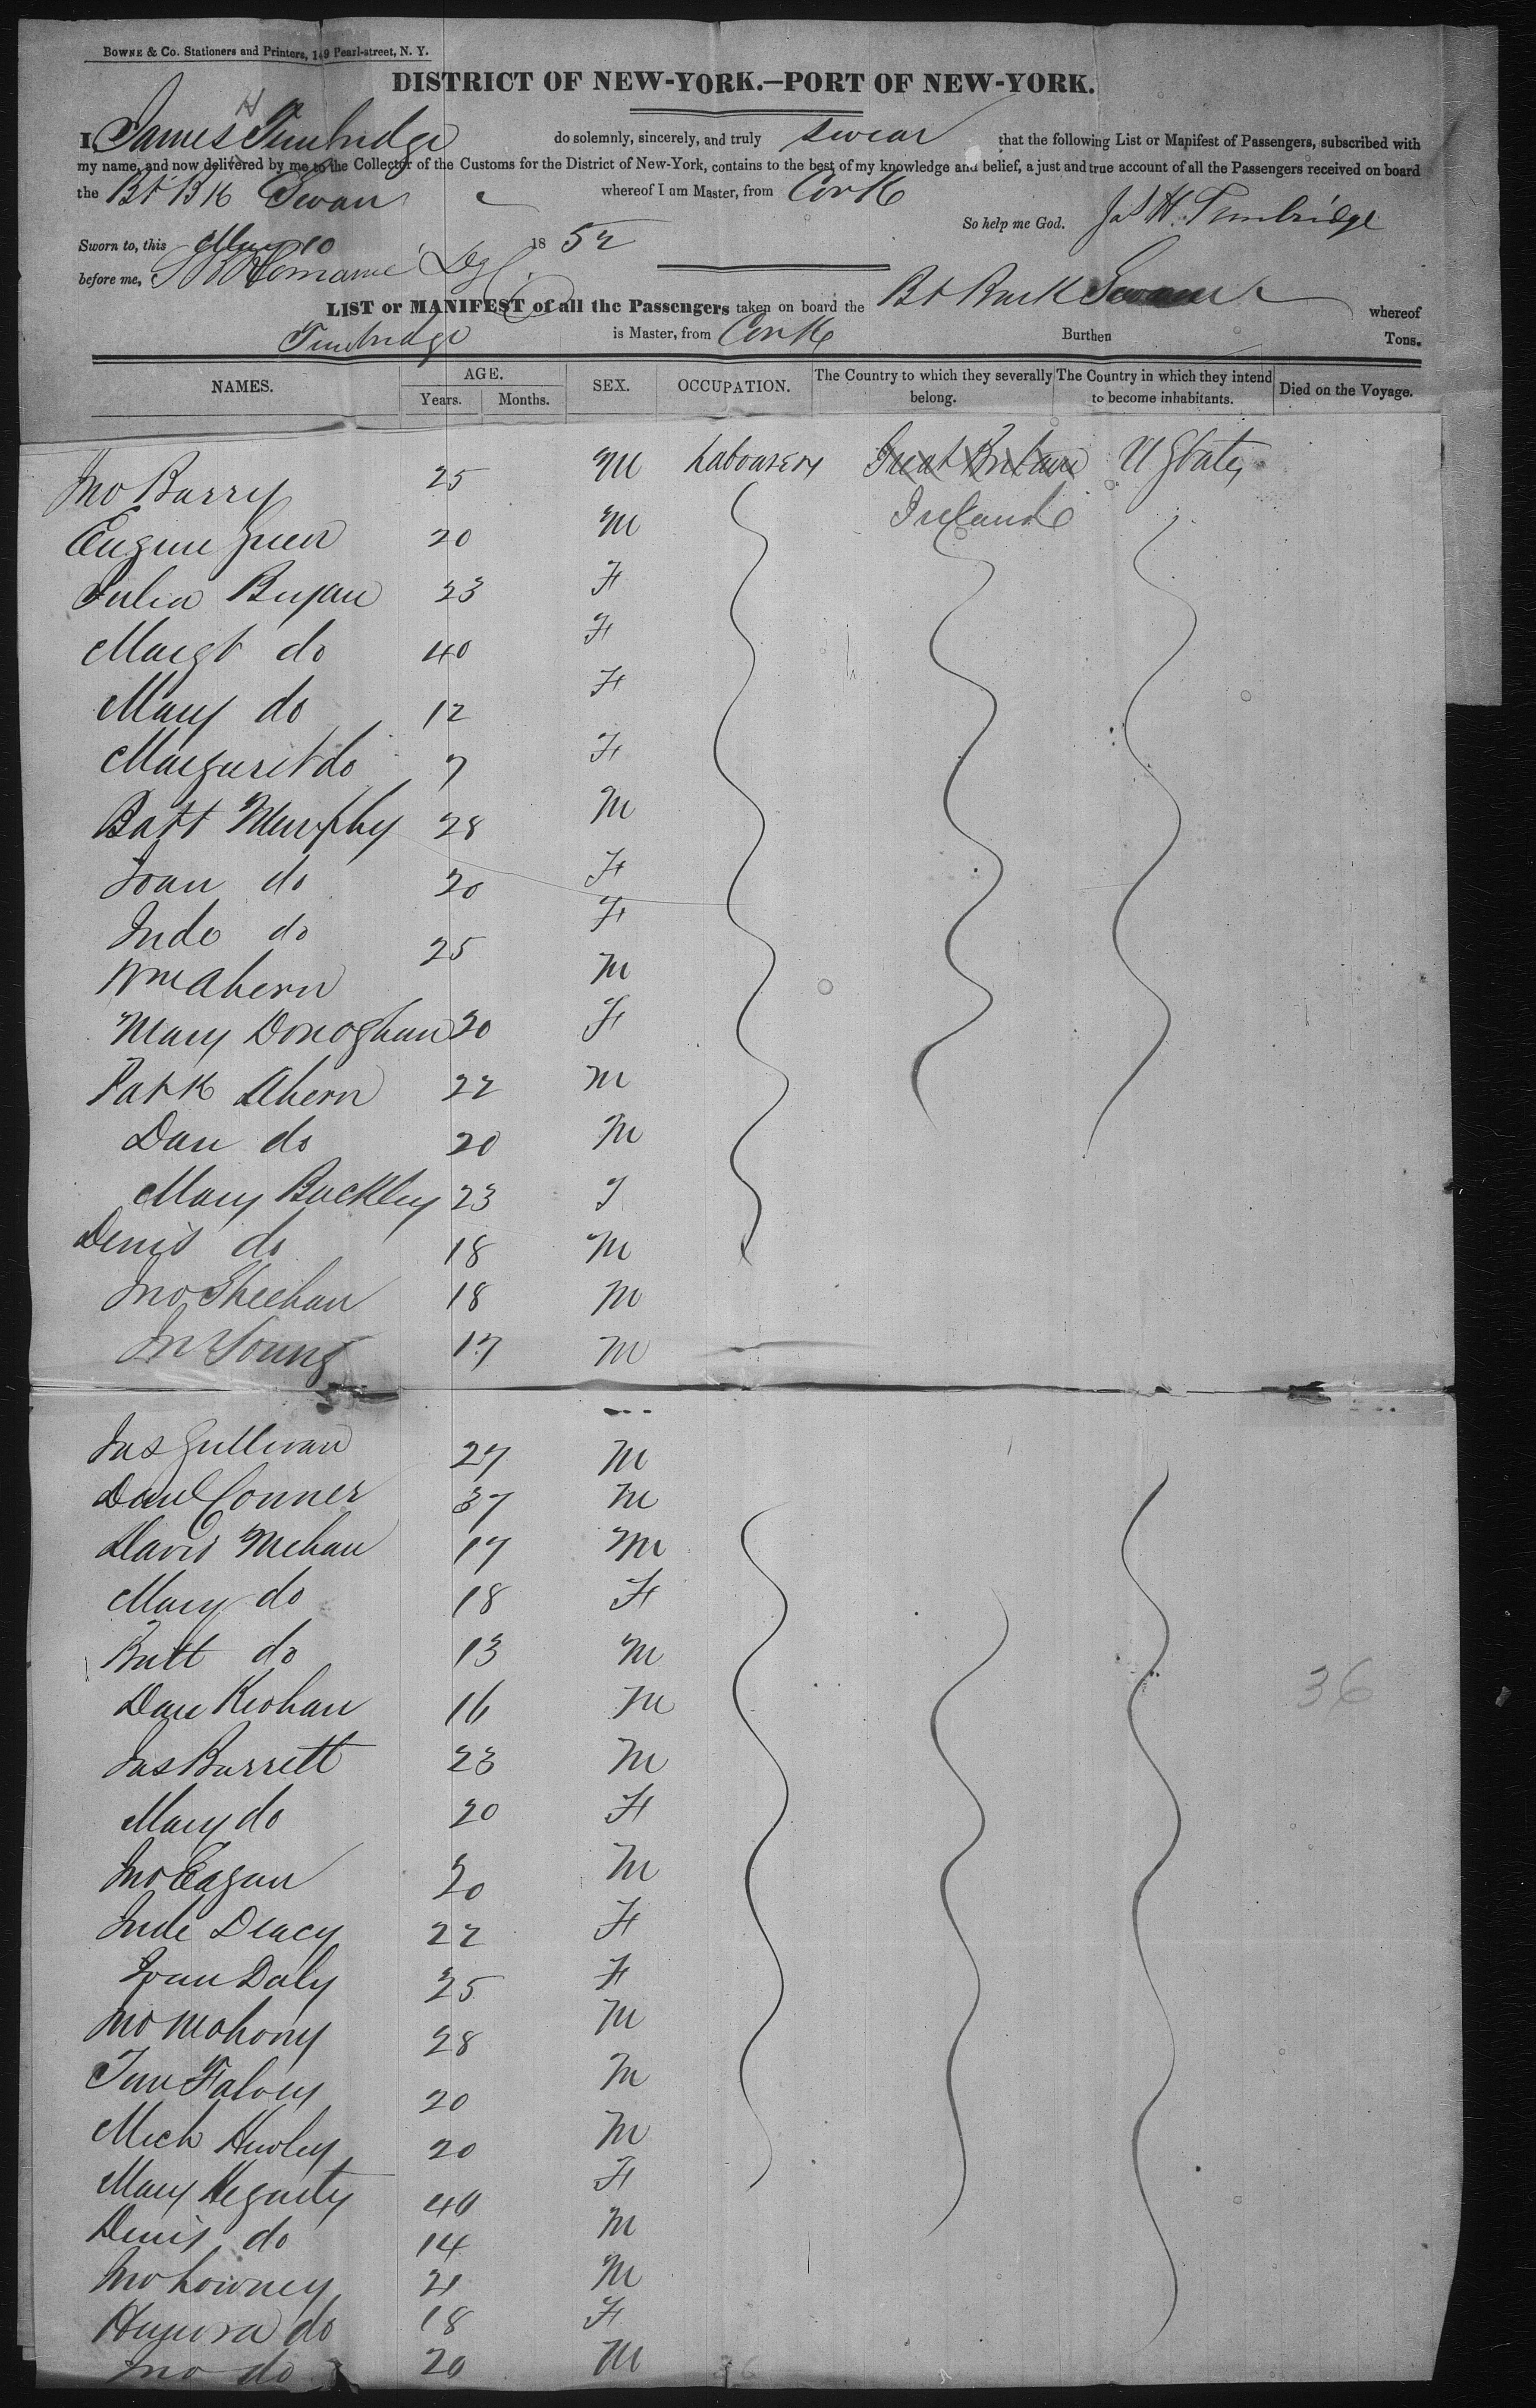 BOWNE & Co. Stationers and Printers, 149 Pearl-street, N. Y.
DISTRICT OF NEW-YORK.—PORT OF NEW-YORK.
I, James H Timbridge do solemnly, sincerely, and truly swear that the following List or Manifest of Passengers, subscribed with
my name, and now delivered by me to the Collector of the Customs for the District of New-York, contains to the best of my knowledge and belief, a just and true account of all the Passengers received on board
the Bt Bk Swan whereof I am Master, from Cork
So help me God. Jas H. Timbridge
Sworn to, this May 10 1852
before me,
LIST or MANIFEST of all the Passengers taken on board the Bt Bark Swan whereof
Timbridge is Master, from Cork Burthen Tons.
NAMES. AGE. Years. Months. SEX. OCCUPATION. The Country to which they severally belong. The Country in which they intend to become inhabitants. Died on the Voyage.
Jno Barry 25 M Labourers Great Britain U States
Eugene Green 20 M Ireland
Julia Bryan 23 F
Margt do 40 F
Mary do 12 F
Margaret do 7 F
Batt Murphy 28 M
Joan do 20 F
Jude do F
Wm Ahern 25 M
Mary Donoghan 20 F
Patk Ahern 22 M
Dan do 20 M
Mary Buckley 23 F
Denis do 18 M
Jno Sheehan 18 M
Jno Young 17 M
Jas Sullivan 27 M
Danl Conner 37 M
David Mehan 17 M
Mary do 18 F
Batt do 13 M
Dan Keohan 16 M
36
Jas Barrett 23 M
Mary do 20 F
Jno Eagan 20 M
Jude Deacy 22 F
Joan Daly 25 F
Jno Mahony 28 M
Tim Falvey 20 M
Mich Hurley 20 M
Mary Hegarty 40 F
Denis do 14 M
Jno Lowney 21 M
Hunora do 18 F
Jno do 20 M